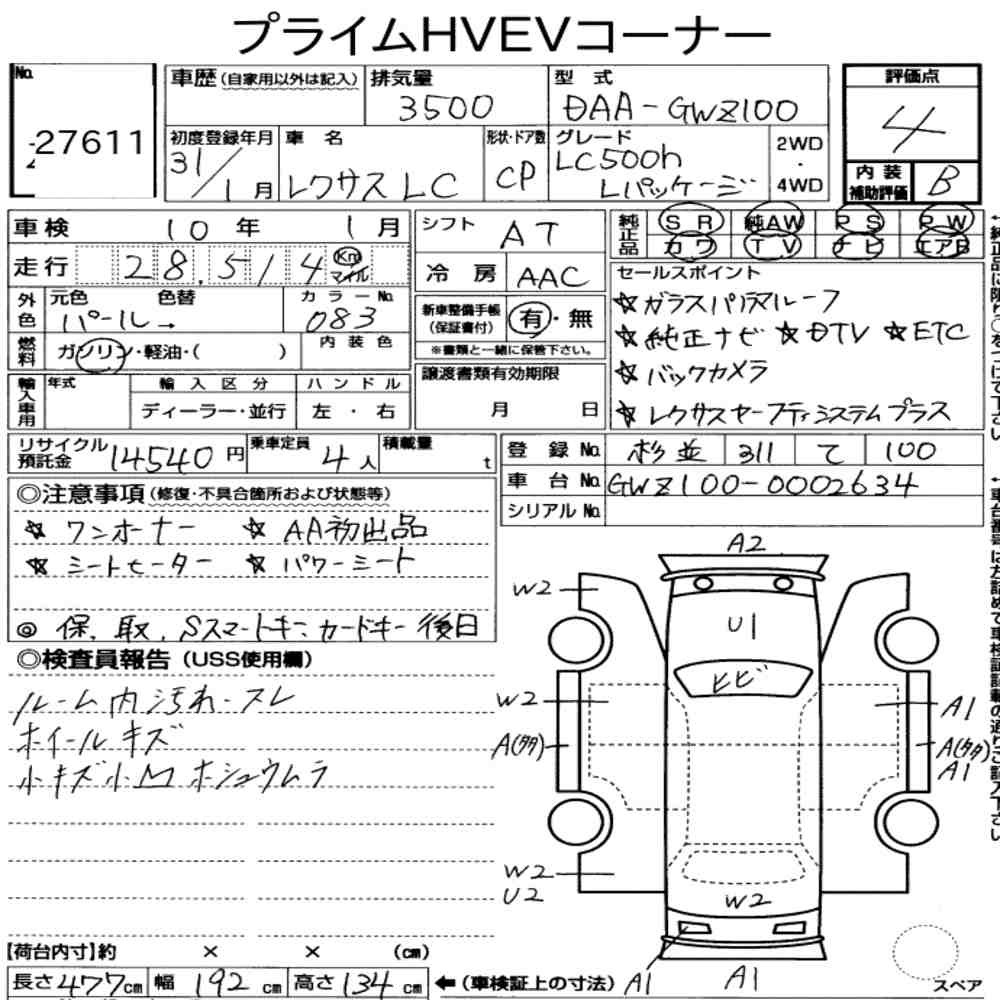 プライムHVEVコーナー
No. 27611
車歴(自家用以外は記入)
排気量 3500
型式 DAA-GWZ100
評価点 4
初度登録年月 31/1月
車名 レクサス LC
形状・ドア数 CP
グレード LC500h Lパッケージ
2WD・4WD
内装補助評価 B
車検 10年 1月
シフト AT
純正品 SR 純AW PS PW
カワ TV ナビ エアB
走行 28,514 Km マイル
冷房 AAC
セールスポイント
☆ガラスパノラマルーフ
☆純正ナビ ☆DTV ☆ETC
☆バックカメラ
☆レクサスセーフティシステムプラス
外色 元色 色替 パール→
カラーNo. 083
新車整備手帳(保証書付) 有・無
※書類と一緒に保管下さい。
燃料 ガソリン・軽油・( )
内装色
輸入車用 年式 輸入区分 ハンドル
ディーラー・並行 左・右
譲渡書類有効期限
月 日
リサイクル預託金 14540円
乗車定員 4人
積載量 t
登録No. 杉並 311 て 100
車台No. GWZ100-0002634
シリアルNo.
◎注意事項(修復・不具合箇所および状態等)
☆ワンオーナー ☆AA初出品
☆シートヒーター ☆パワーシート
◎保、取、Sスマートキー、カードキー後日
◎検査員報告(USS使用欄)
ルーム内汚れ・スレ
ホイールキズ
小キズ小凹ホシュウムラ
A2
W2
U1
ヒビ
W2
A1
A(タタ)
A(タタ)
A1
W2
U2
W2
A1
A1
スペア
【荷台内寸】約 × × (cm)
長さ477cm 幅192cm 高さ134cm ←(車検証上の寸法)